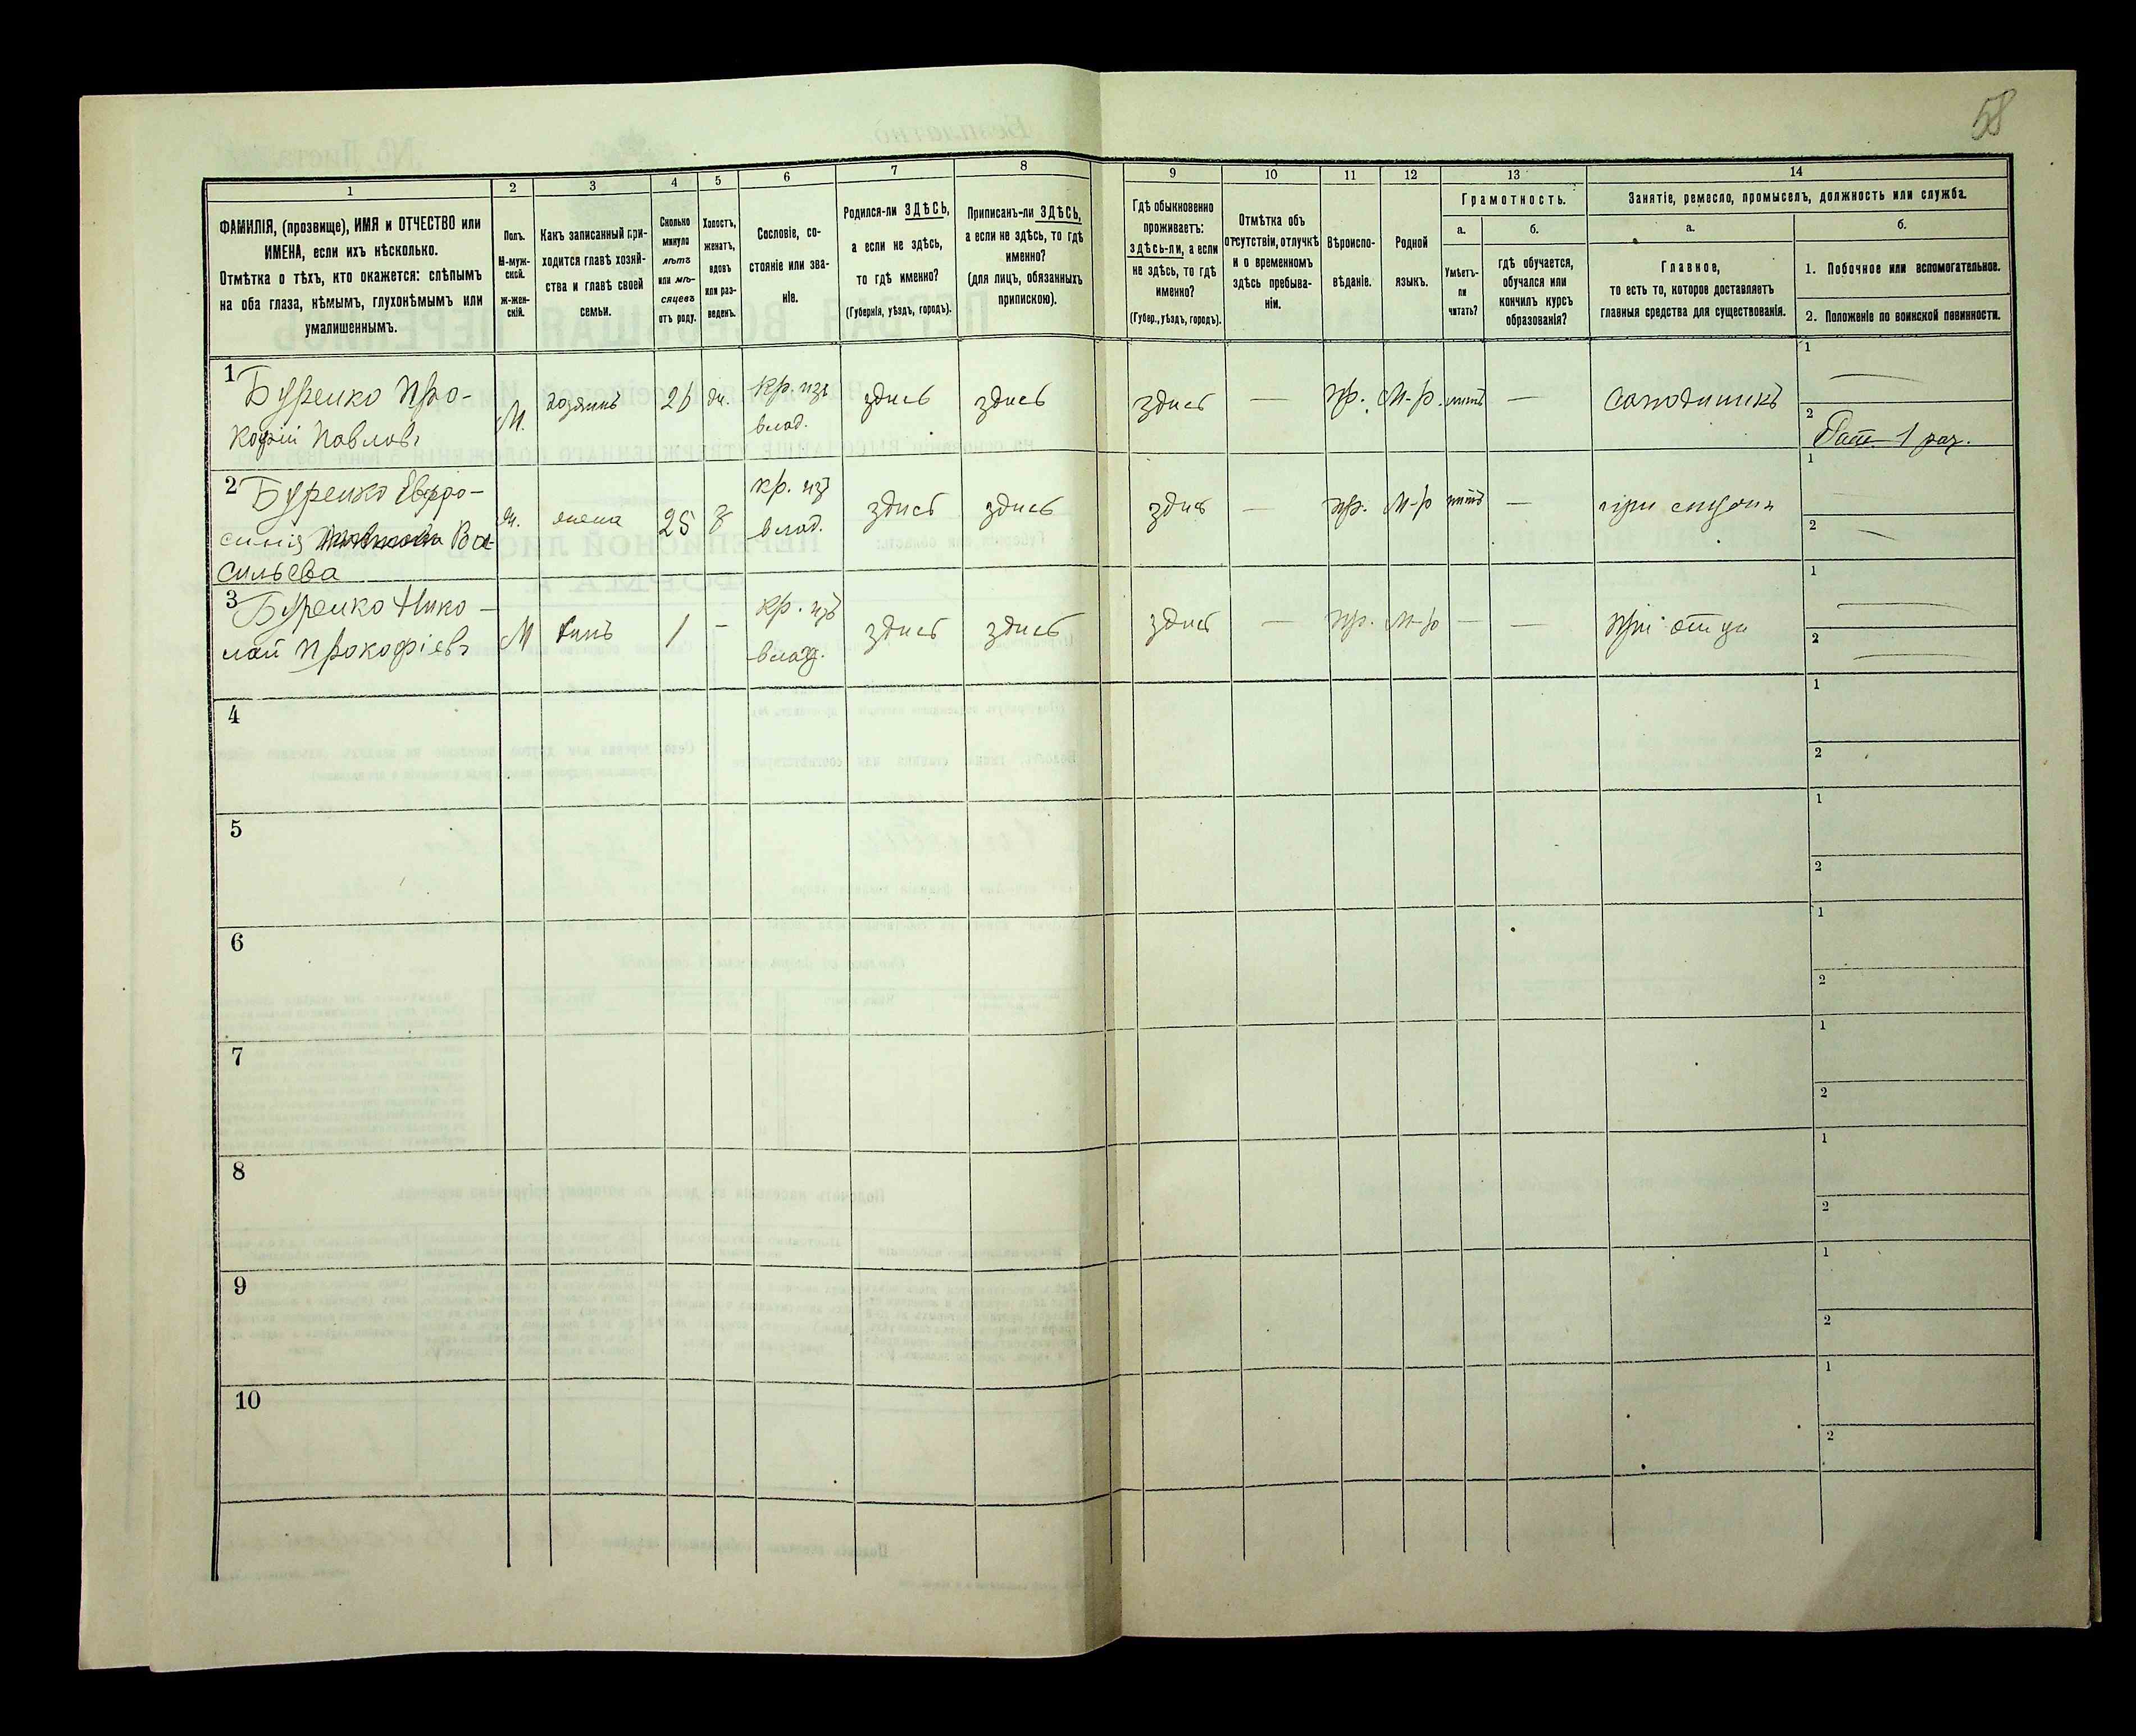 58
1
2
3
4
5
6
7
8
9
10
11
12
13
14
ФАМИЛІЯ, (прозвище), ИМЯ и ОТЧЕСТВО или
ИМЕНА, если ихъ нѣсколько.
Отмѣтка о тѣхъ, кто окажется: слѣпымъ
на оба глаза, нѣмымъ, глухонѣмымъ или
умалишеннымъ.
Полъ.
М-муж-
ской.
ж-жен-
скій.
Какъ записанный при-
ходится главѣ хозяй-
ства и главѣ своей
семьи.
Сколько
минуло
лѣтъ
или мѣ-
сяцевъ
отъ роду.
Холостъ,
женатъ,
вдовъ
или раз-
веденъ.
Сословіе, со-
стояніе или зва-
ніе.
Родился-ли ЗДѢСЬ,
а если не здѣсь,
то гдѣ именно?
(Губернія, уѣздъ, городъ).
Приписанъ-ли ЗДѢСЬ,
а если не здѣсь, то гдѣ
именно?
(для лицъ, обязанныхъ
припискою).
Гдѣ обыкновенно
проживаетъ:
здѣсь-ли, а если
не здѣсь, то гдѣ
именно?
(Губер., уѣздъ, городъ).
Отмѣтка объ
отсутствіи, отлучкѣ
и о временномъ
здѣсь пребыва-
ніи.
Вѣроиспо-
вѣданіе.
Родной
языкъ.
Грамотность.
а.
Умѣетъ-
ли
читать?
б.
гдѣ обучается,
обучался или
кончилъ курсъ
образованія?
Занятіе, ремесло, промыселъ, должность или служба.
а.
Главное,
то есть то, которое доставляетъ
главныя средства для существованія.
б.
1. Побочное или вспомогательное.
2. Положеніе по воинской повинности.
1 Буренко Про-
кофій Павловъ
М.
хозяинъ
26
жн.
кр. изъ
влад.
здѣсь
здѣсь
здѣсь
—
пр.
М-р.
нѣтъ
—
Сапожникъ
1 —
2 Рат. 1 раз.
2 Буренко Евфро-
синія Ва-
сильева
ж.
жена
25
з
кр. изъ
влад.
здѣсь
здѣсь
здѣсь
—
пр.
М-р
нѣтъ
—
при мужѣ
1 —
2 —
3 Буренко Нико-
лай Прокофіевъ
М
сынъ
1
—
кр. изъ
влад.
здѣсь
здѣсь
здѣсь
—
пр.
М-р
—
—
при отцѣ
1 —
2 —
4
1
2
5
1
2
6
1
2
7
1
2
8
1
2
9
1
2
10
1
2